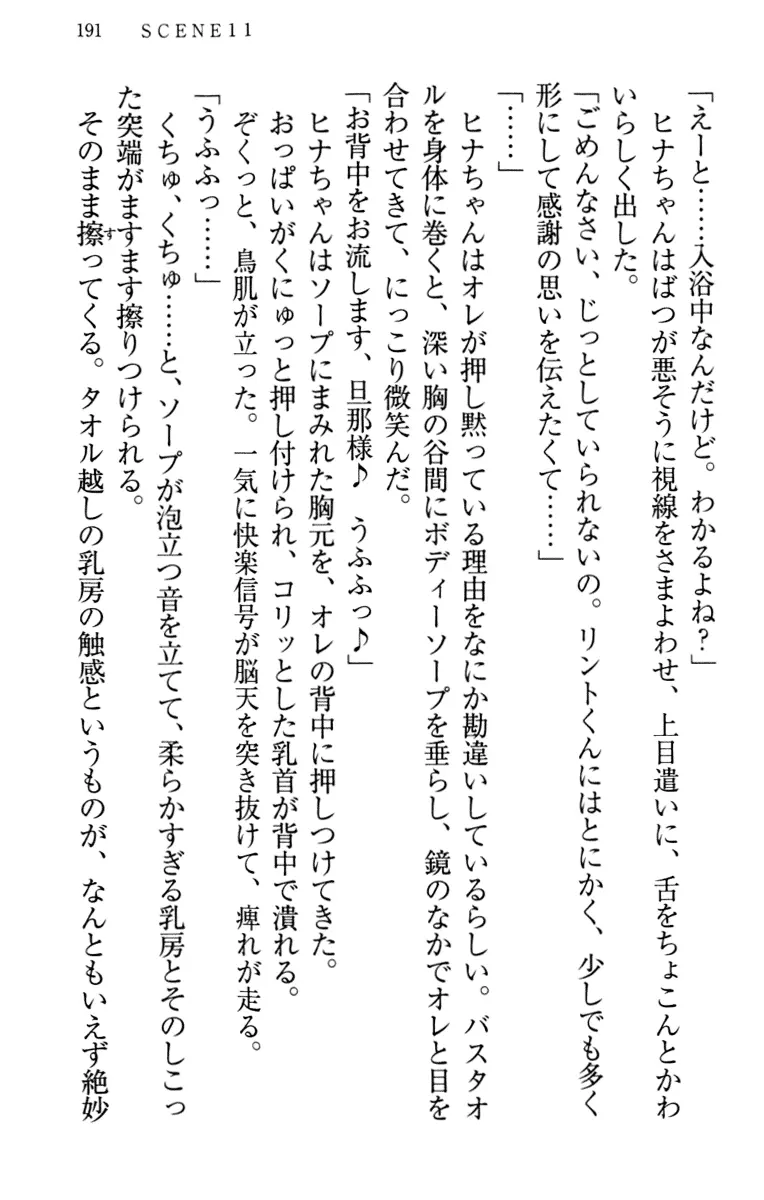 191　SCENE11
「えーと……入浴中なんだけど。わかるよね？」
　ヒナちゃんはばつが悪そうに視線をさまよわせ、上目遣いに、舌をちょこんとかわ
いらしく出した。
「ごめんなさい、じっとしていられないの。リントくんにはとにかく、少しでも多く
形にして感謝の思いを伝えたくて……」
「……」
　ヒナちゃんはオレが押し黙っている理由をなにか勘違いしているらしい。バスタオ
ルを身体に巻くと、深い胸の谷間にボディーソープを垂らし、鏡のなかでオレと目を
合わせてきて、にっこり微笑んだ。
「お背中をお流します、旦那様♪　うふふっ♪」
　ヒナちゃんはソープにまみれた胸元を、オレの背中に押しつけてきた。
　おっぱいがくにゅっと押し付けられ、コリッとした乳首が背中で潰れる。
　ぞくっと、鳥肌が立った。一気に快楽信号が脳天を突き抜けて、痺れが走る。
「うふふっ……」
　くちゅ、くちゅ……と、ソープが泡立つ音を立てて、柔らかすぎる乳房とそのしこっ
た突端がますます擦りつけられる。
　そのまま擦ってくる。タオル越しの乳房の触感というものが、なんともいえず絶妙